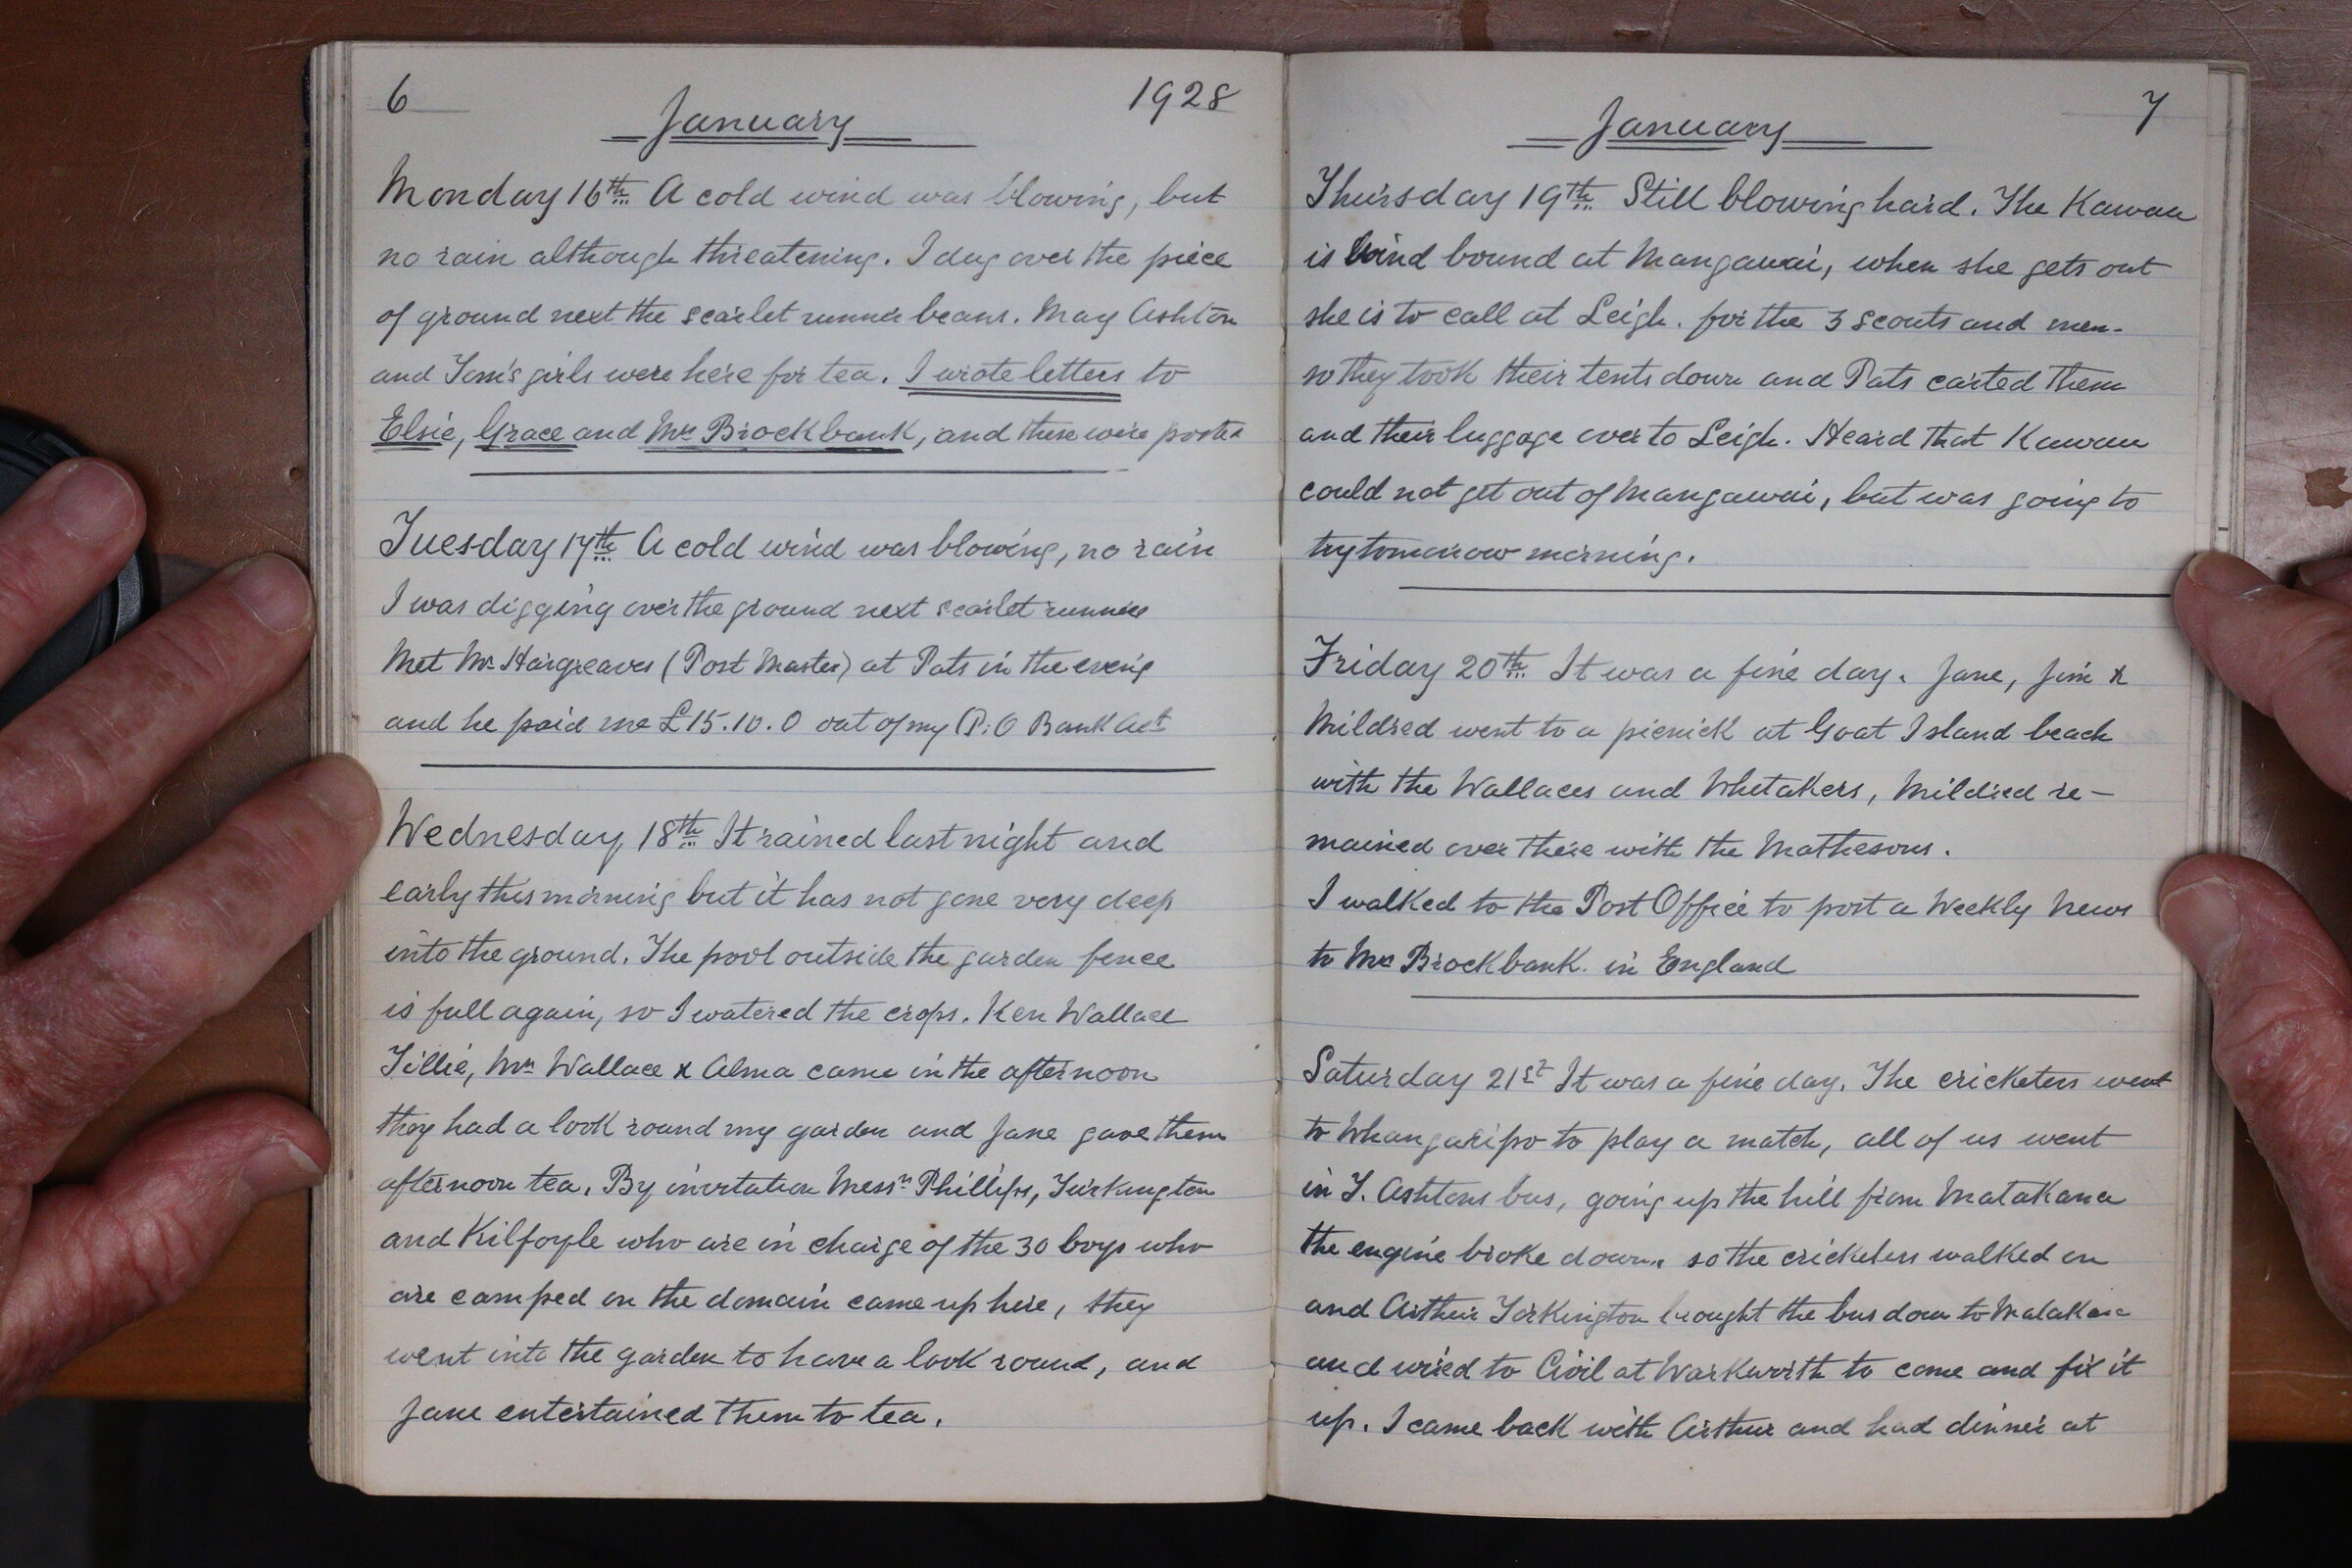 6 1928
January
Monday 16th A cold wind was blowing, but
no rain although threatening. I dug over the piece
of ground next the scarlet runner beans. May Ashton
and Tom's girls were here for tea. I wrote letters to
Elsie, Grace and Mrs Brockbank, and these were posted
Tuesday 17th A cold wind was blowing, no rain
I was digging over the ground next scarlet runners
Met Mr Hargreaves (Post Master) at Pats in the evening
and he paid me £15.10.0 out of my P.O Bank Act
Wednesday 18th It rained last night and
early this morning but it has not gone very deep
into the ground. The pool outside the garden fence
is full again, so I watered the crops. Ken Wallace
Tillie, Mrs Wallace & Alma came in the afternoon
they had a look round my garden and Jane gave them
afternoon tea. By invitation Messrs Phillips, Turkington
and Kilfoyle who are in charge of the 30 boys who
are camped on the domain came up here, they
went into the garden to have a look round, and
Jane entertained them to tea.
7
January
Thursday 19th Still blowing hard. The Kawau
is wind bound at Mangawai, when she gets out
she is to call at Leigh. for the 3 scouts and men.
so they took their tents down and Pats carted them
and their luggage over to Leigh. Heard that Kawau
could not get out of Mangawai, but was going to
try tomorrow morning.
Friday 20th It was a fine day. Jane, Jim &
Mildred went to a picnick at Goat Island beach
with the Wallaces and Whetakers, Mildred re-
mained over there with the Mathesons.
I walked to the Post Office to post a Weekly News
to Mrs Brockbank. in England
Saturday 21st It was a fine day. The cricketers went
to Whangaripo to play a match, all of us went
in T. Ashtons bus, going up the hill from Matakana
the engine broke down. so the cricketers walked on
and Arthur Torkington brought the bus down to Matakana
and wried to Civil at Warkworth to come and fix it
up. I came back with Arthur and had dinner at